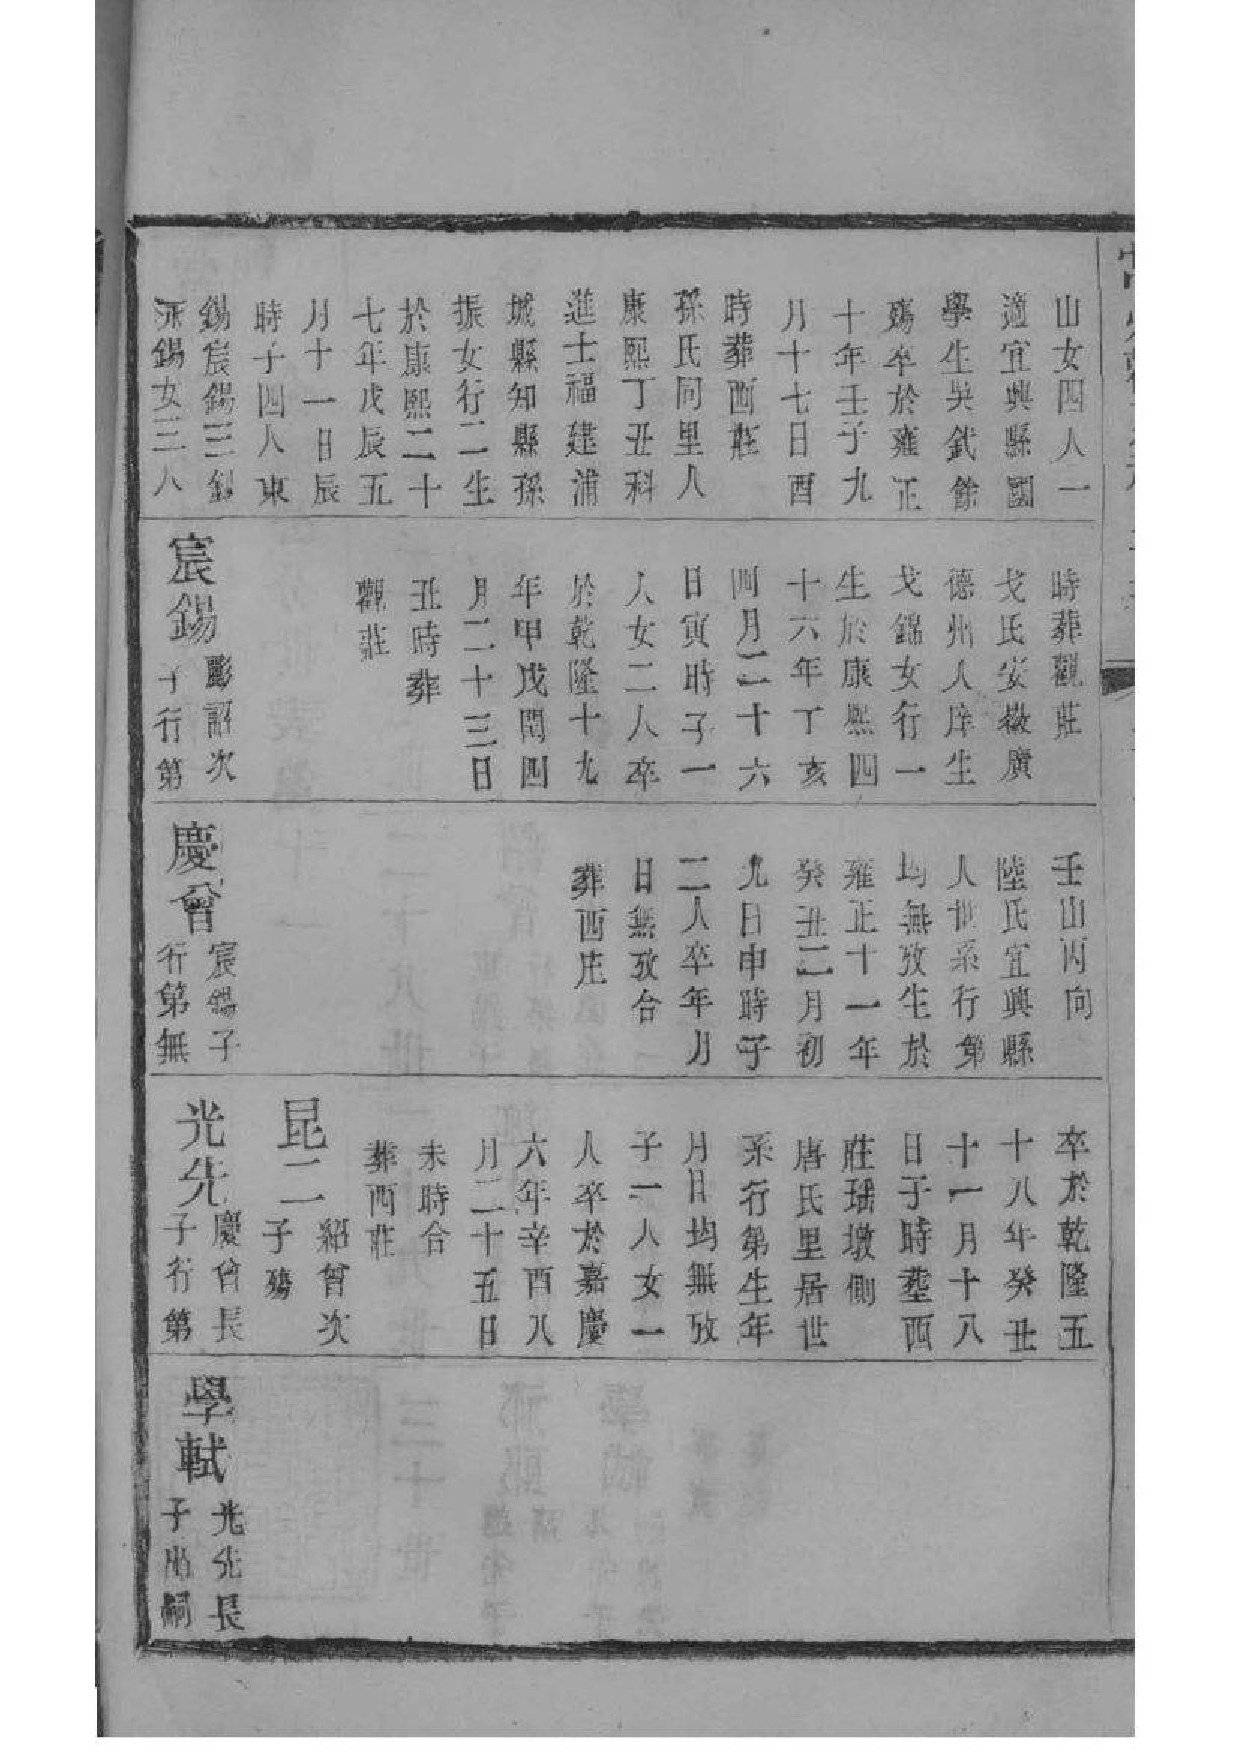 山女四人一
適宜興縣國
學生吳弒餘
殤卒於雍正
十年壬子九
月十七日酉
時葬西莊
孫氏同里人
康熙丁丑科
進士福建浦
城縣知縣孫
振女行二生
於康熙二十
七年戊辰五
月十一日辰
時子四人東
錫宸錫三錫
錫女三人
時葬觀莊
戈氏安徽廣
德州人庠生
戈錦女行一
生於康熙四
十六年丁亥
四月二十六
日寅時子一
人女二人卒
於乾隆十九
年甲戌閏四
月二十三日
丑時葬
觀莊
宸錫
彫詔次
子行第
壬山丙向
陸氏宜興縣
人世系行第
均無攷生於
雍正十一年
癸丑二月初
九日申時子
二人卒年月
日無攷合
葬西庄
慶曾
宸錫子
行第無
卒於乾隆五
十八年癸丑
十一月十八
日子時塟西
莊瑶墩側
唐氏里居世
系行第生年
月日均無攷
子一人女一
人卒於嘉慶
六年辛酉八
月二十五日
未時合
葬西莊
昆二
紹曾次
子殤
光先
慶曾長
子行第
學軾
光先長
子出嗣